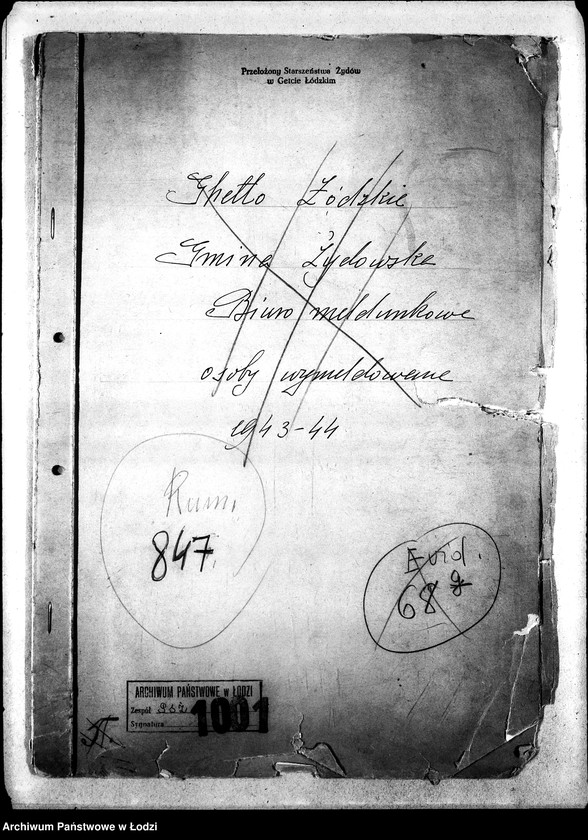 Przełożony Starszeństwa Żydów
w Getcie Łódzkim
Ghetto Łódzkie
Gmina Żydowska
Biuro meldunkowe
osoby wymeldowane
1943-44
Rum.
847
Ewid.
68 g
ARCHIWUM PAŃSTWOWE w ŁODZI
Zespół PSŻ
Sygnatura 1001
Archiwum Państwowe w Łodzi